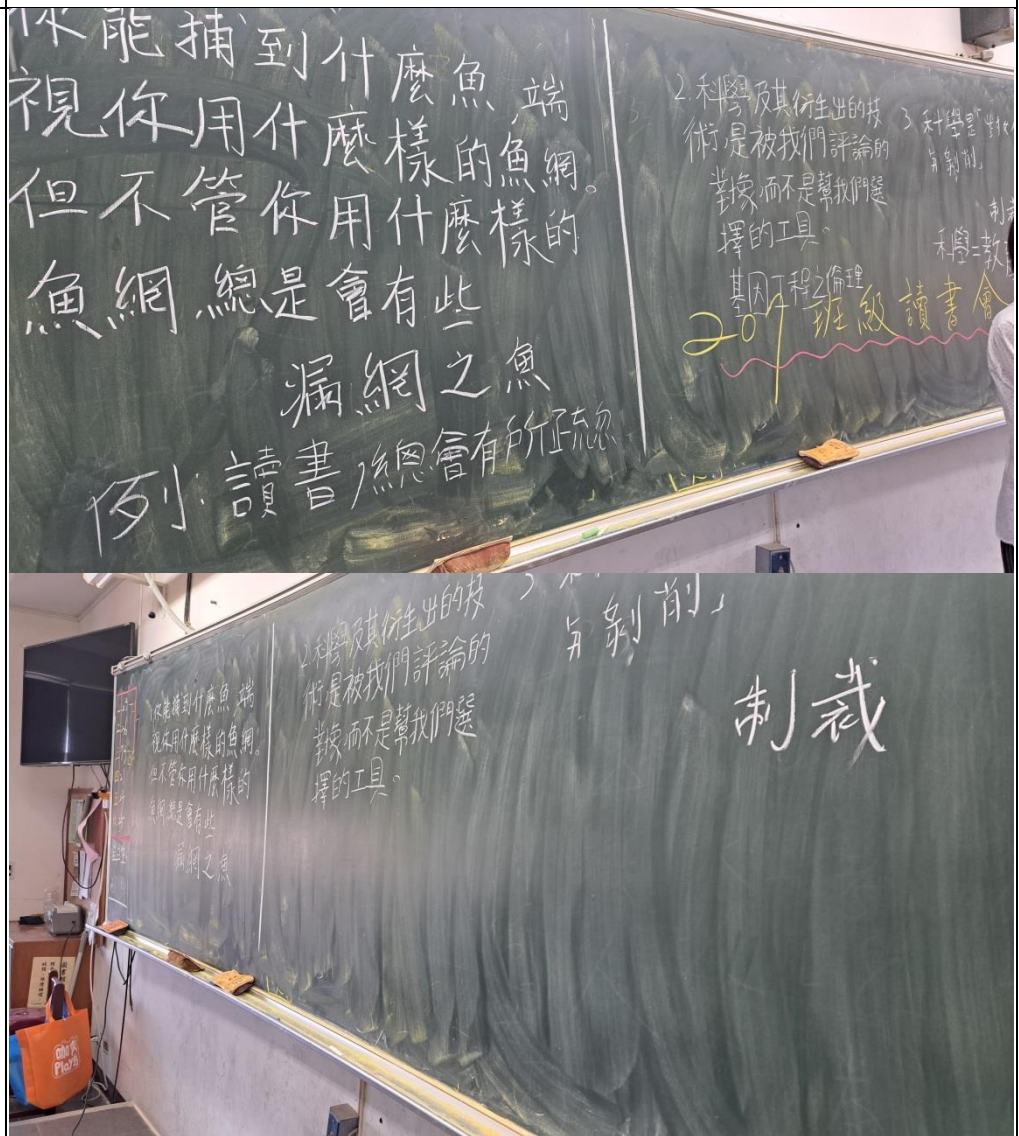 你能捕到什麼魚,端
視你用什麼樣的魚網。
但不管你用什麼樣的
魚網,總是會有些
漏網之魚
例:讀書,總會有所疏忽
2.科學及其衍生出的技
術,是被我們評論的
對象,而不是幫我們選
擇的工具。
基因工程之倫理
3 科學是
剝削」
科學=教
207 班級讀書會
你能捕到什麼魚,端
視你用什麼樣的魚網。
但不管你用什麼樣的
魚網,總是會有些
漏網之魚
2.科學及其衍生出的技
術,是被我們評論的
對象,而不是幫我們選
擇的工具。
3
剝削」
制裁
Play